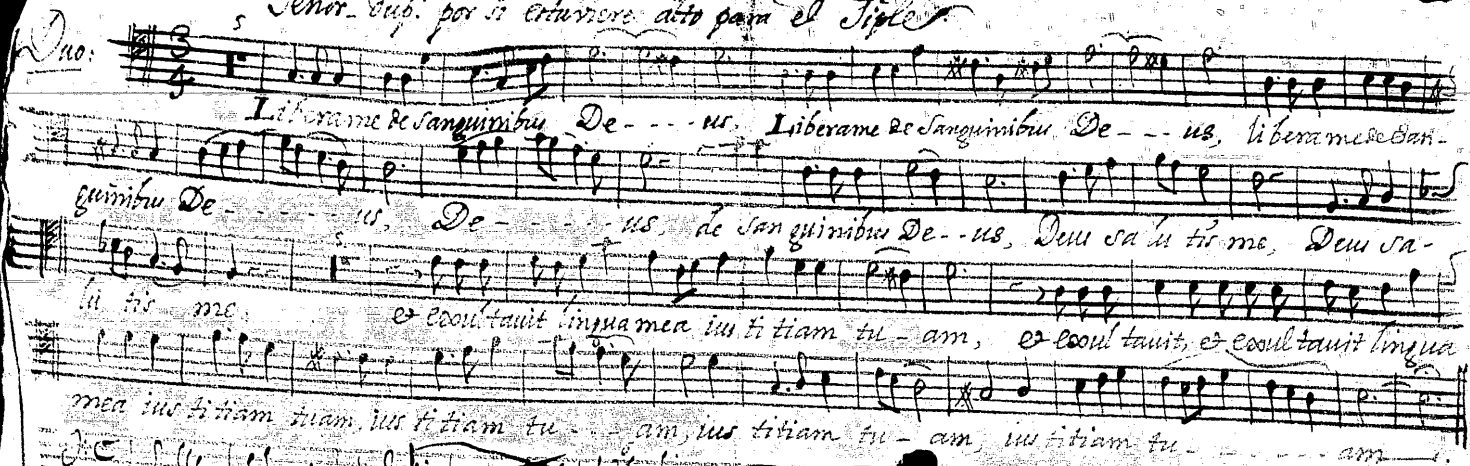 Tenor. dup. por si estuviere alto para el Tiple
Duo:
5
3
4
Libera me de Sanguinibus De - - - - us, Libera me de Sanguinibus De - - - us, libera me de San-
guinibus De - - - - - - us, De - - - - - us, de sanguinibus De - - us, Deus salutis me, Deus sa-
5
lutis me. et exoultavit lingua mea iustitiam tu - am, et exoultavit, et exoultavit lingua
mea iustitiam tuam, iustitiam tu - - - am, iustitiam tu - am, iustitiam tu - - - - - - am.